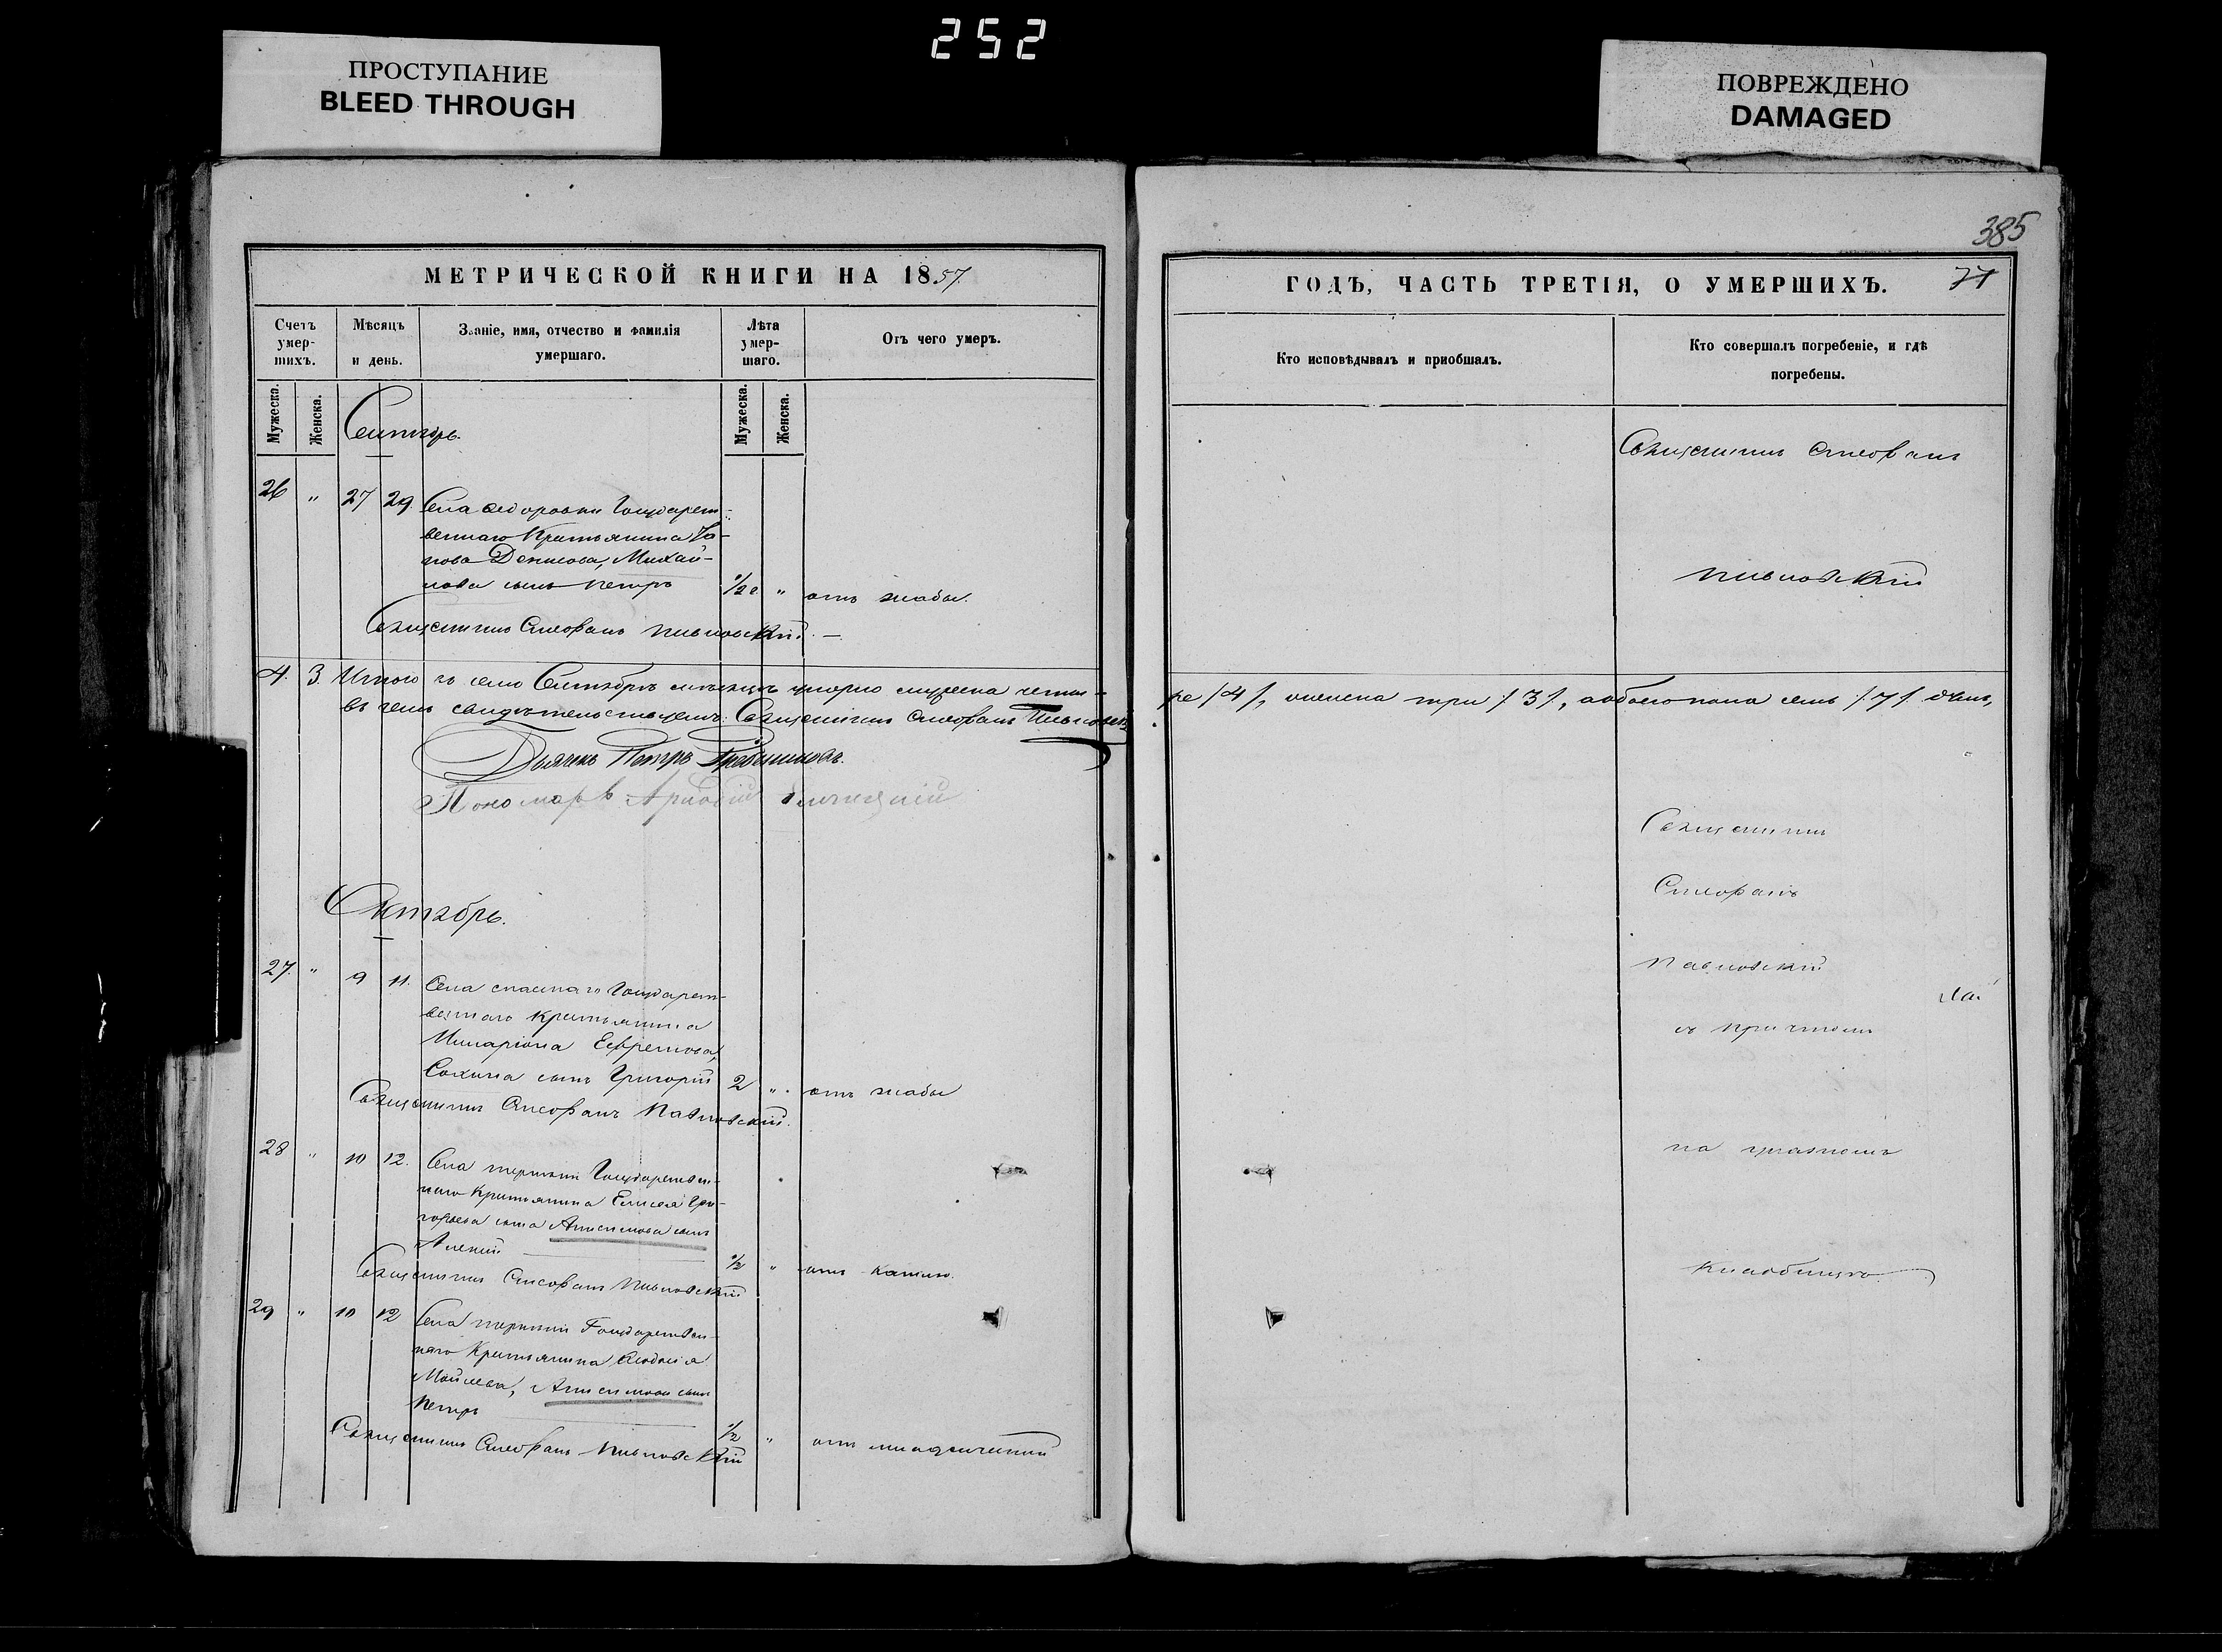 252
ПРОСТУПАНИЕ
BLEED THROUGH
ПОВРЕЖДЕНО
DAMAGED
МЕТРИЧЕСКОЙ КНИГИ НА 1857
Счетъ умер-шихъ.
Мѣсяцъ и день.
Званіе, имя, отчество и фамилія умершаго.
Лѣта умер-шаго.
Отъ чего умеръ.
Мужеска.
Женска.
Мужеска.
Женска.
Сентябрь.
26 " 27 29 Села Федоровки Государст-
веннаго Крестьянина
Денисова, Михай-
лова сынъ Петръ 1/2 " отъ жабы.
Священникъ Стефанъ Павловскій.
4. 3. Итого въ семъ Сентябрѣ мѣсяцѣ умерло мужеска четы-
въ чемъ свидѣтельствуемъ: Священникъ Стефанъ Павловскій
Дьячекъ Петръ
Пономарь
Октябрь.
27. " 9 11. Села Государст-
веннаго крестьянина
Иларіона Ефремова,
Сохина сынъ Григорій 2 " отъ жабы
Священникъ Стефанъ Павловскій.
28 " 10 12. Села Терновки Государствен-
наго Крестьянина Елисея Гри-
горьева сына Анисимова сынъ
Алексій 1/2 " отъ кашлю.
Священникъ Стефанъ Павловскій
29 " 10 12 Села Терновки Государствен-
наго Крестьянина
Анисимова сынъ
Петръ 1/2 " отъ младенческой
Священникъ Стефанъ Павловскій
385
71
ГОДЪ, ЧАСТЬ ТРЕТІЯ, О УМЕРШИХЪ.
Кто исповѣдывалъ и пріобщалъ.
Кто совершалъ погребеніе, и гдѣ погребены.
Священникъ Стефанъ
Павловскій
ре /4/, женска три /3/, обоего пола семь /7/ душъ,
Священникъ
Стефанъ
Павловскій
съ причтомъ
на
кладбищѣ.